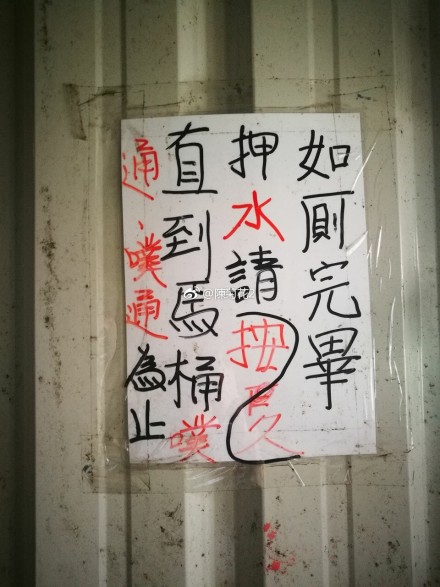 如厠完畢
押水請按久
直到馬桶噗
通、噗通為止